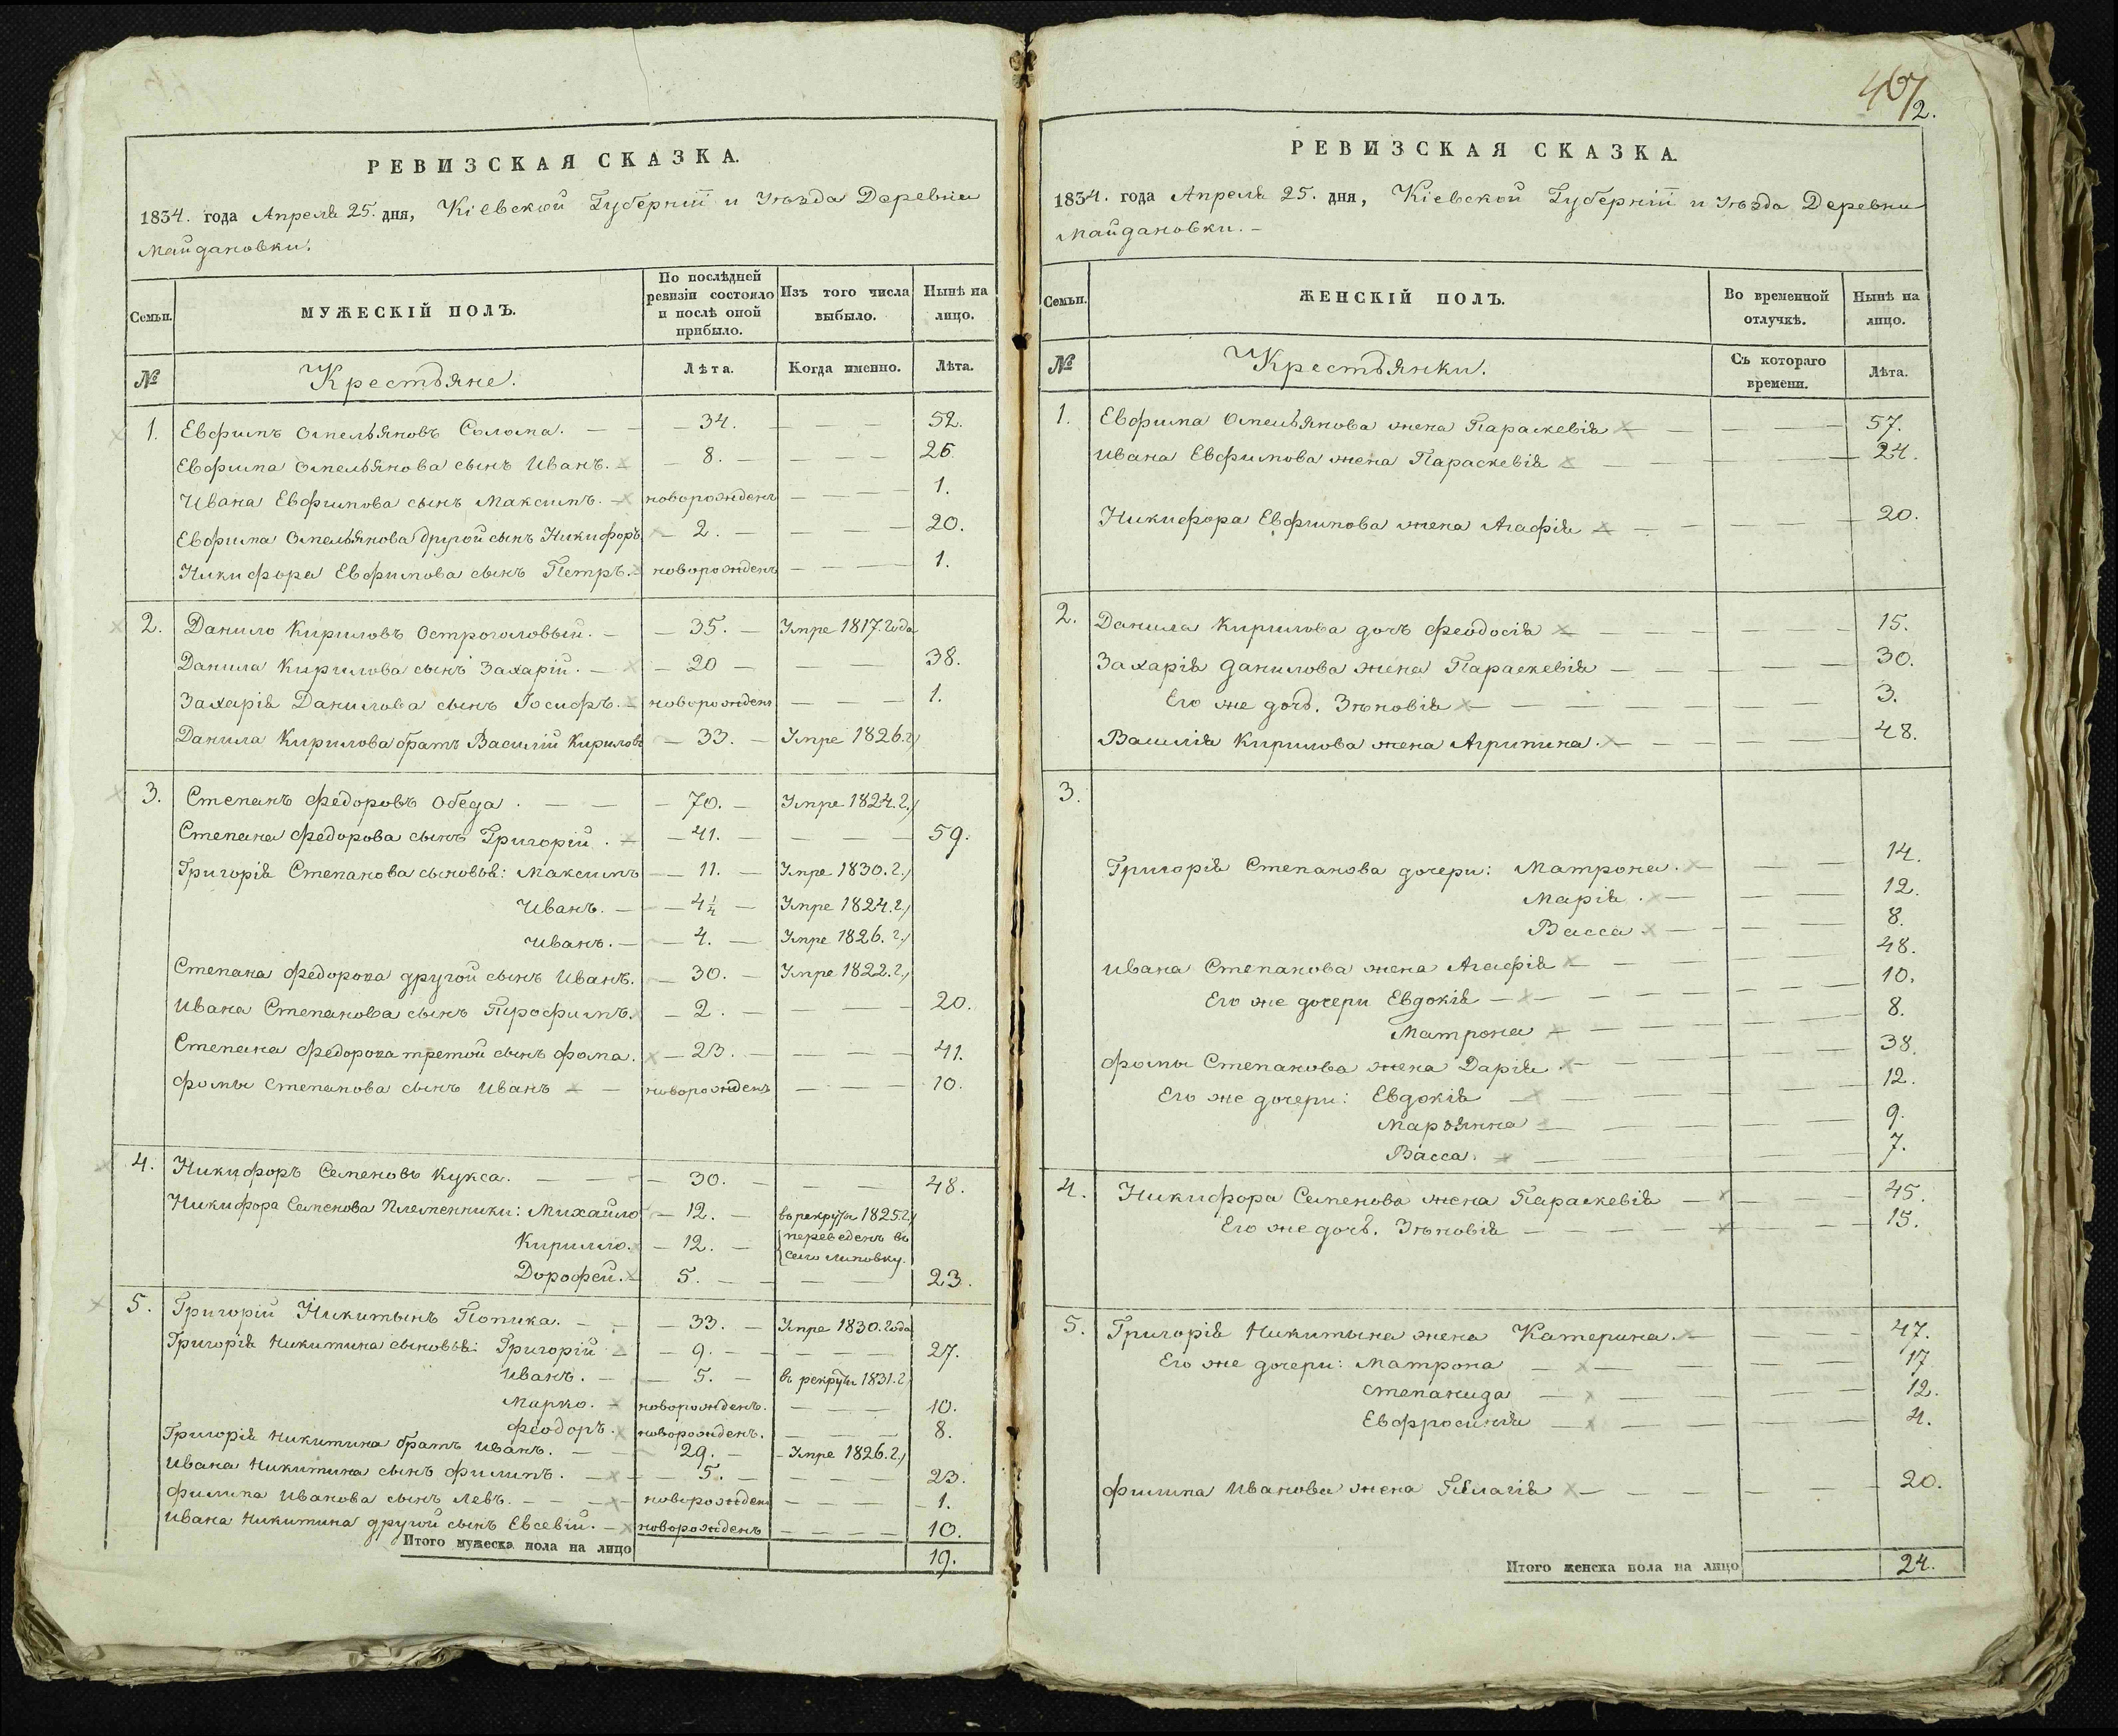 РЕВИЗСКАЯ СКАЗКА.
1834. года Апреля 25. дня, Кіевской Губерніи и Уѣзда Деревни
Майдановки.
Семьи. МУЖЕСКІЙ ПОЛЪ. По послѣдней ревизіи состояло и послѣ оной прибыло. Изъ того числа выбыло. Нынѣ на лицо.
№ Крестьяне. Лѣта. Когда именно. Лѣта.
1. Евфимъ Омельяновъ Солома. 34. 52.
Евфима Омельянова сынъ Иванъ. 8. 26.
Ивана Евфимова сынъ Максимъ. новорожденъ 1.
Евфима Омельянова другой сынъ Никифоръ 2. 20.
Никифора Евфимова сынъ Петръ. новорожденъ 1.
2. Данило Кириловъ Остроголовый. 35. Умре 1817. Года
Данила Кирилова сынъ Захарій. 20 38.
Захарія Данилова сынъ Іосифъ. новорожденъ 1.
Данила Кирилова братъ Василій Кириловъ 33. Умре 1826. г.
3. Степанъ Федоровъ Обеда. 70. Умре 1824. г.
Степана Федорова сынъ Григорій. 41. 59.
Григорія Степанова сыновья: Максимъ 11. Умре 1830. г.
Иванъ. 4¼ Умре 1824. г.
Иванъ. 4. Умре 1826. г.
Степана Федорова другой сынъ Иванъ. 30. Умре 1822. г.
Ивана Степанова сынъ Трофимъ. 2. 20.
Степана Федорова третой сынъ Фома. 23. 41.
Фомы Степанова сынъ Иванъ новорожденъ 10.
4. Никифоръ Семеновъ Кукса. 30. 48.
Никифора Семенова Племенники: Михайло 12. въ рекруты 1825. г.
Кирилло. 12. переведенъ въ
село Липовку.
Дорофей. 5. 23.
5. Григорій Никитынъ Попика. 33. Умре 1830. Года
Григорія Никитина сыновья: Григорій 9. 27.
Иванъ. 5. въ рекруты 1831. г.
Марко. новорожденъ. 10.
Феодоръ. новорожденъ. 8.
Григорія Никитина братъ Иванъ. 29. Умре 1826. г.
Ивана Никитина сынъ Филипъ. 5. 23.
Филипа Иванова сынъ Левъ. новорожденъ 1.
Ивана Никитина другой сынъ Евсевій. новорожденъ 10.
Итого мужеска пола на лицо 19.
407
2.
РЕВИЗСКАЯ СКАЗКА.
1834. года Апреля 25. дня, Кіевской Губерніи и Уѣзда Деревни
Майдановки.
Семьи. ЖЕНСКІЙ ПОЛЪ. Во временной отлучкѣ. Нынѣ на лицо.
№ Крестьянки. Съ котораго времени. Лѣта.
1. Евфима Омельянова жена Параскевія 57.
Ивана Евфимова жена Параскевія 24.
Никифора Евфимова жена Агафія 20.
2. Данила Кирилова дочь Феодосія 15.
Захарія Данилова жена Параскевія 30.
Его же дочь. Зѣновія 3.
Василія Кирилова жена Агрипина. 48.
3.
Григорія Степанова дочери: Матрона. 14.
Марія. 12.
Васса 8.
Ивана Степанова жена Агафія 48.
Его же дочери Евдокія 10.
Матрона 8.
Фомы Степанова жена Дарія. 38.
Его же дочери: Евдокія 12.
Марьянна 9.
Васса. 7.
4. Никифора Семенова жена Параскевія 45.
Его же дочь. Зѣновія 15.
5. Григорія Никитына жена Катерина. 47.
Его же дочери: Матрона 17
Степанида 12.
Евфросинія 4.
Филипа Иванова жена Пелагія 20.
Итого женска пола на лицо 24.